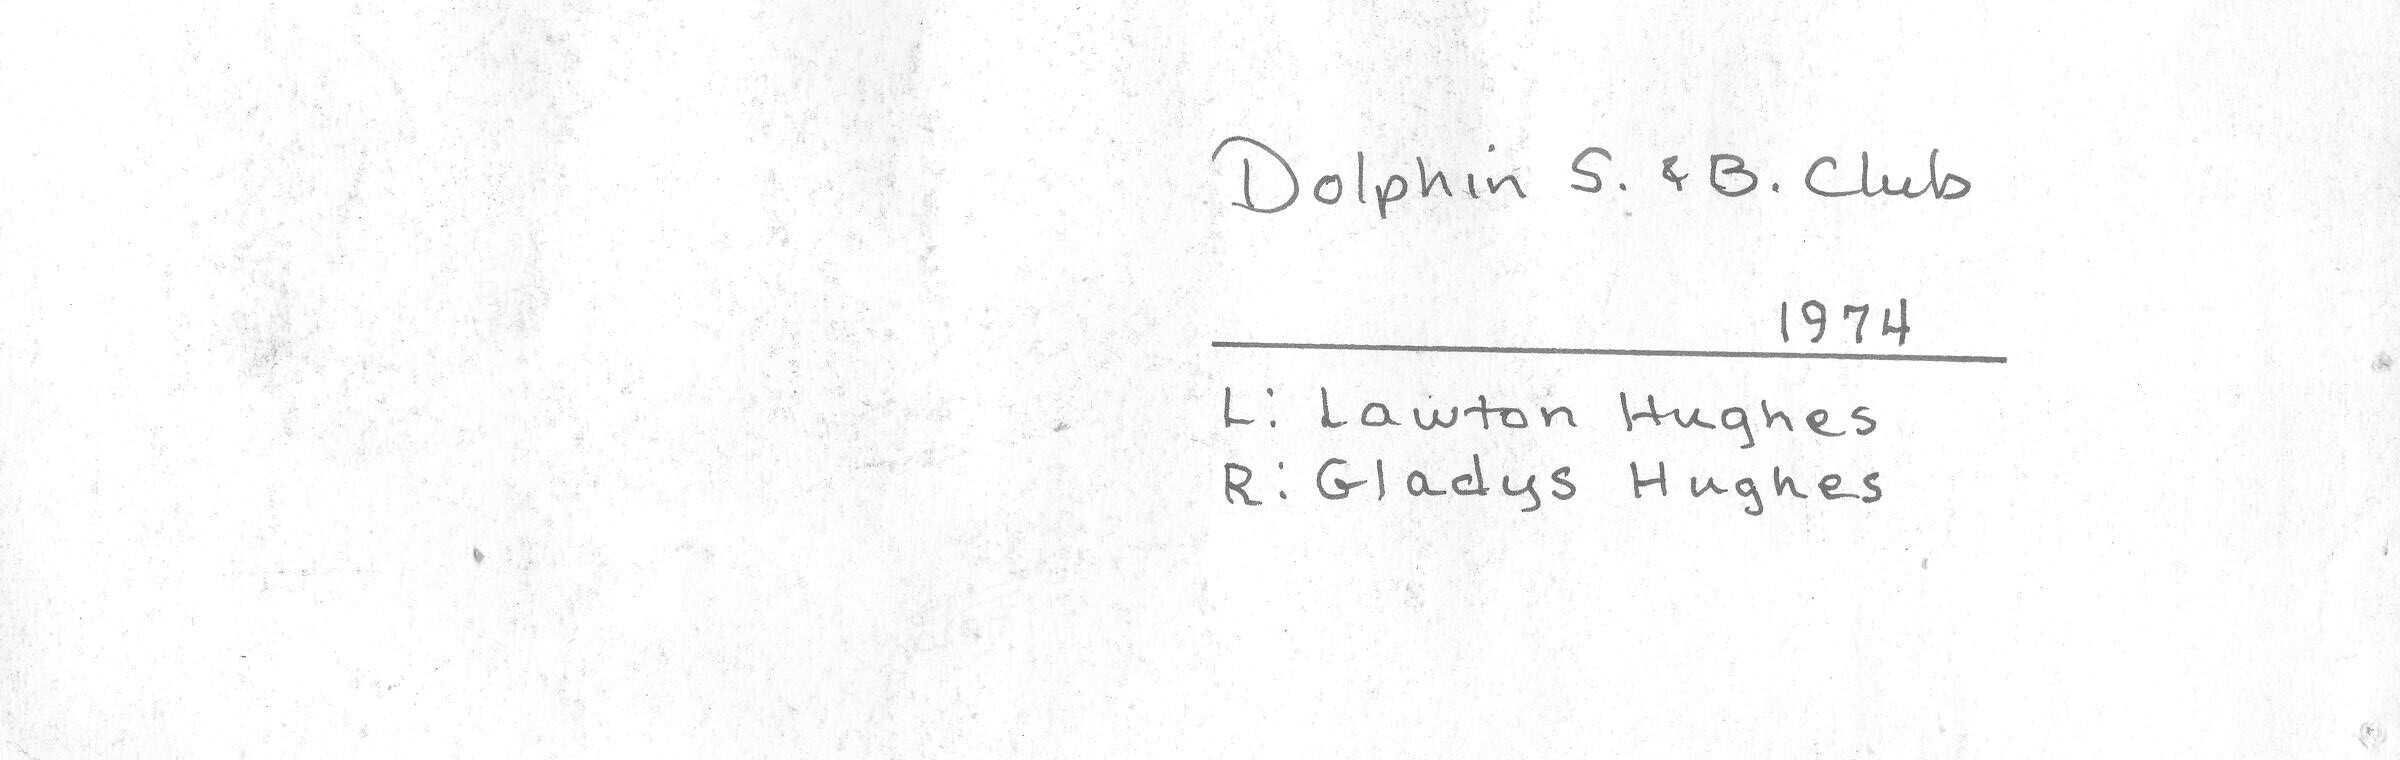 Dolphin S. & B. Club
1974
L: Lawton Hughes
R: Gladys Hughes